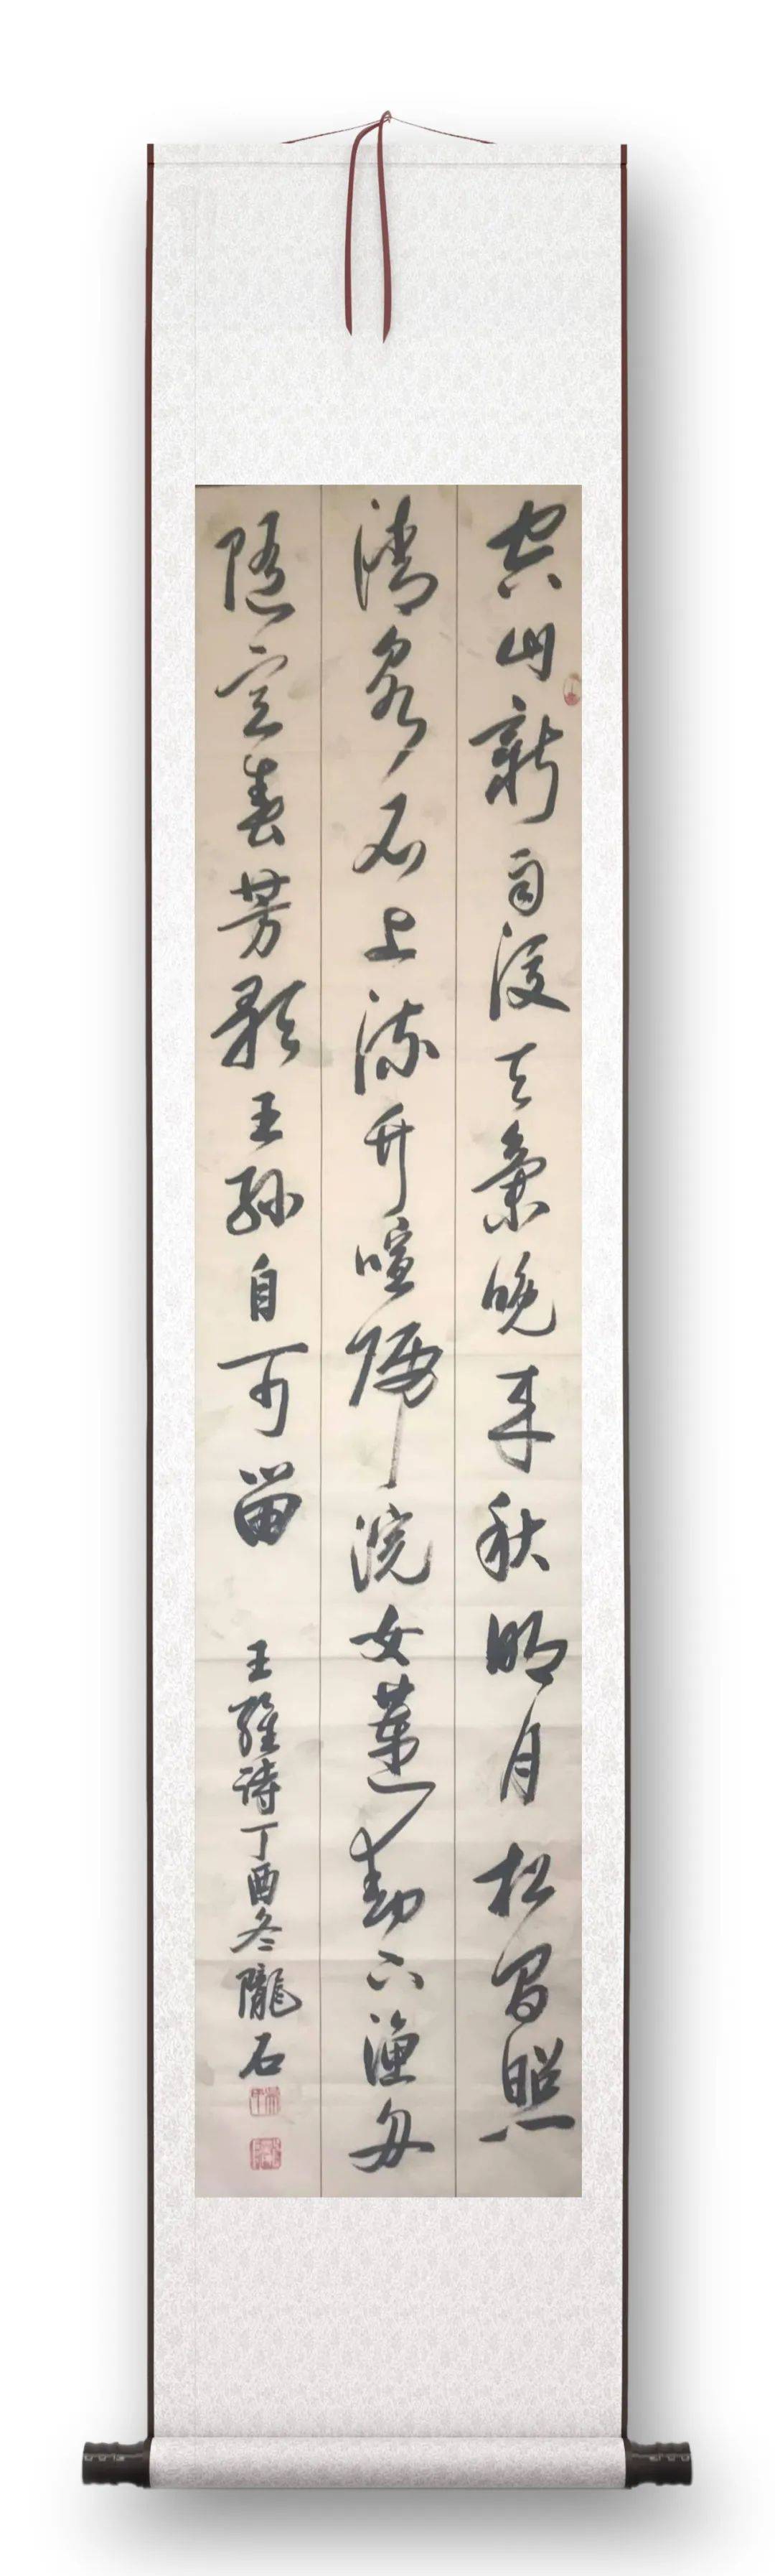 空山新雨後天氣晚来秋明月松間照
清泉石上流竹喧歸浣女蓮動下漁舟
隨意春芳歇王孫自可留 王維詩丁酉冬隴石